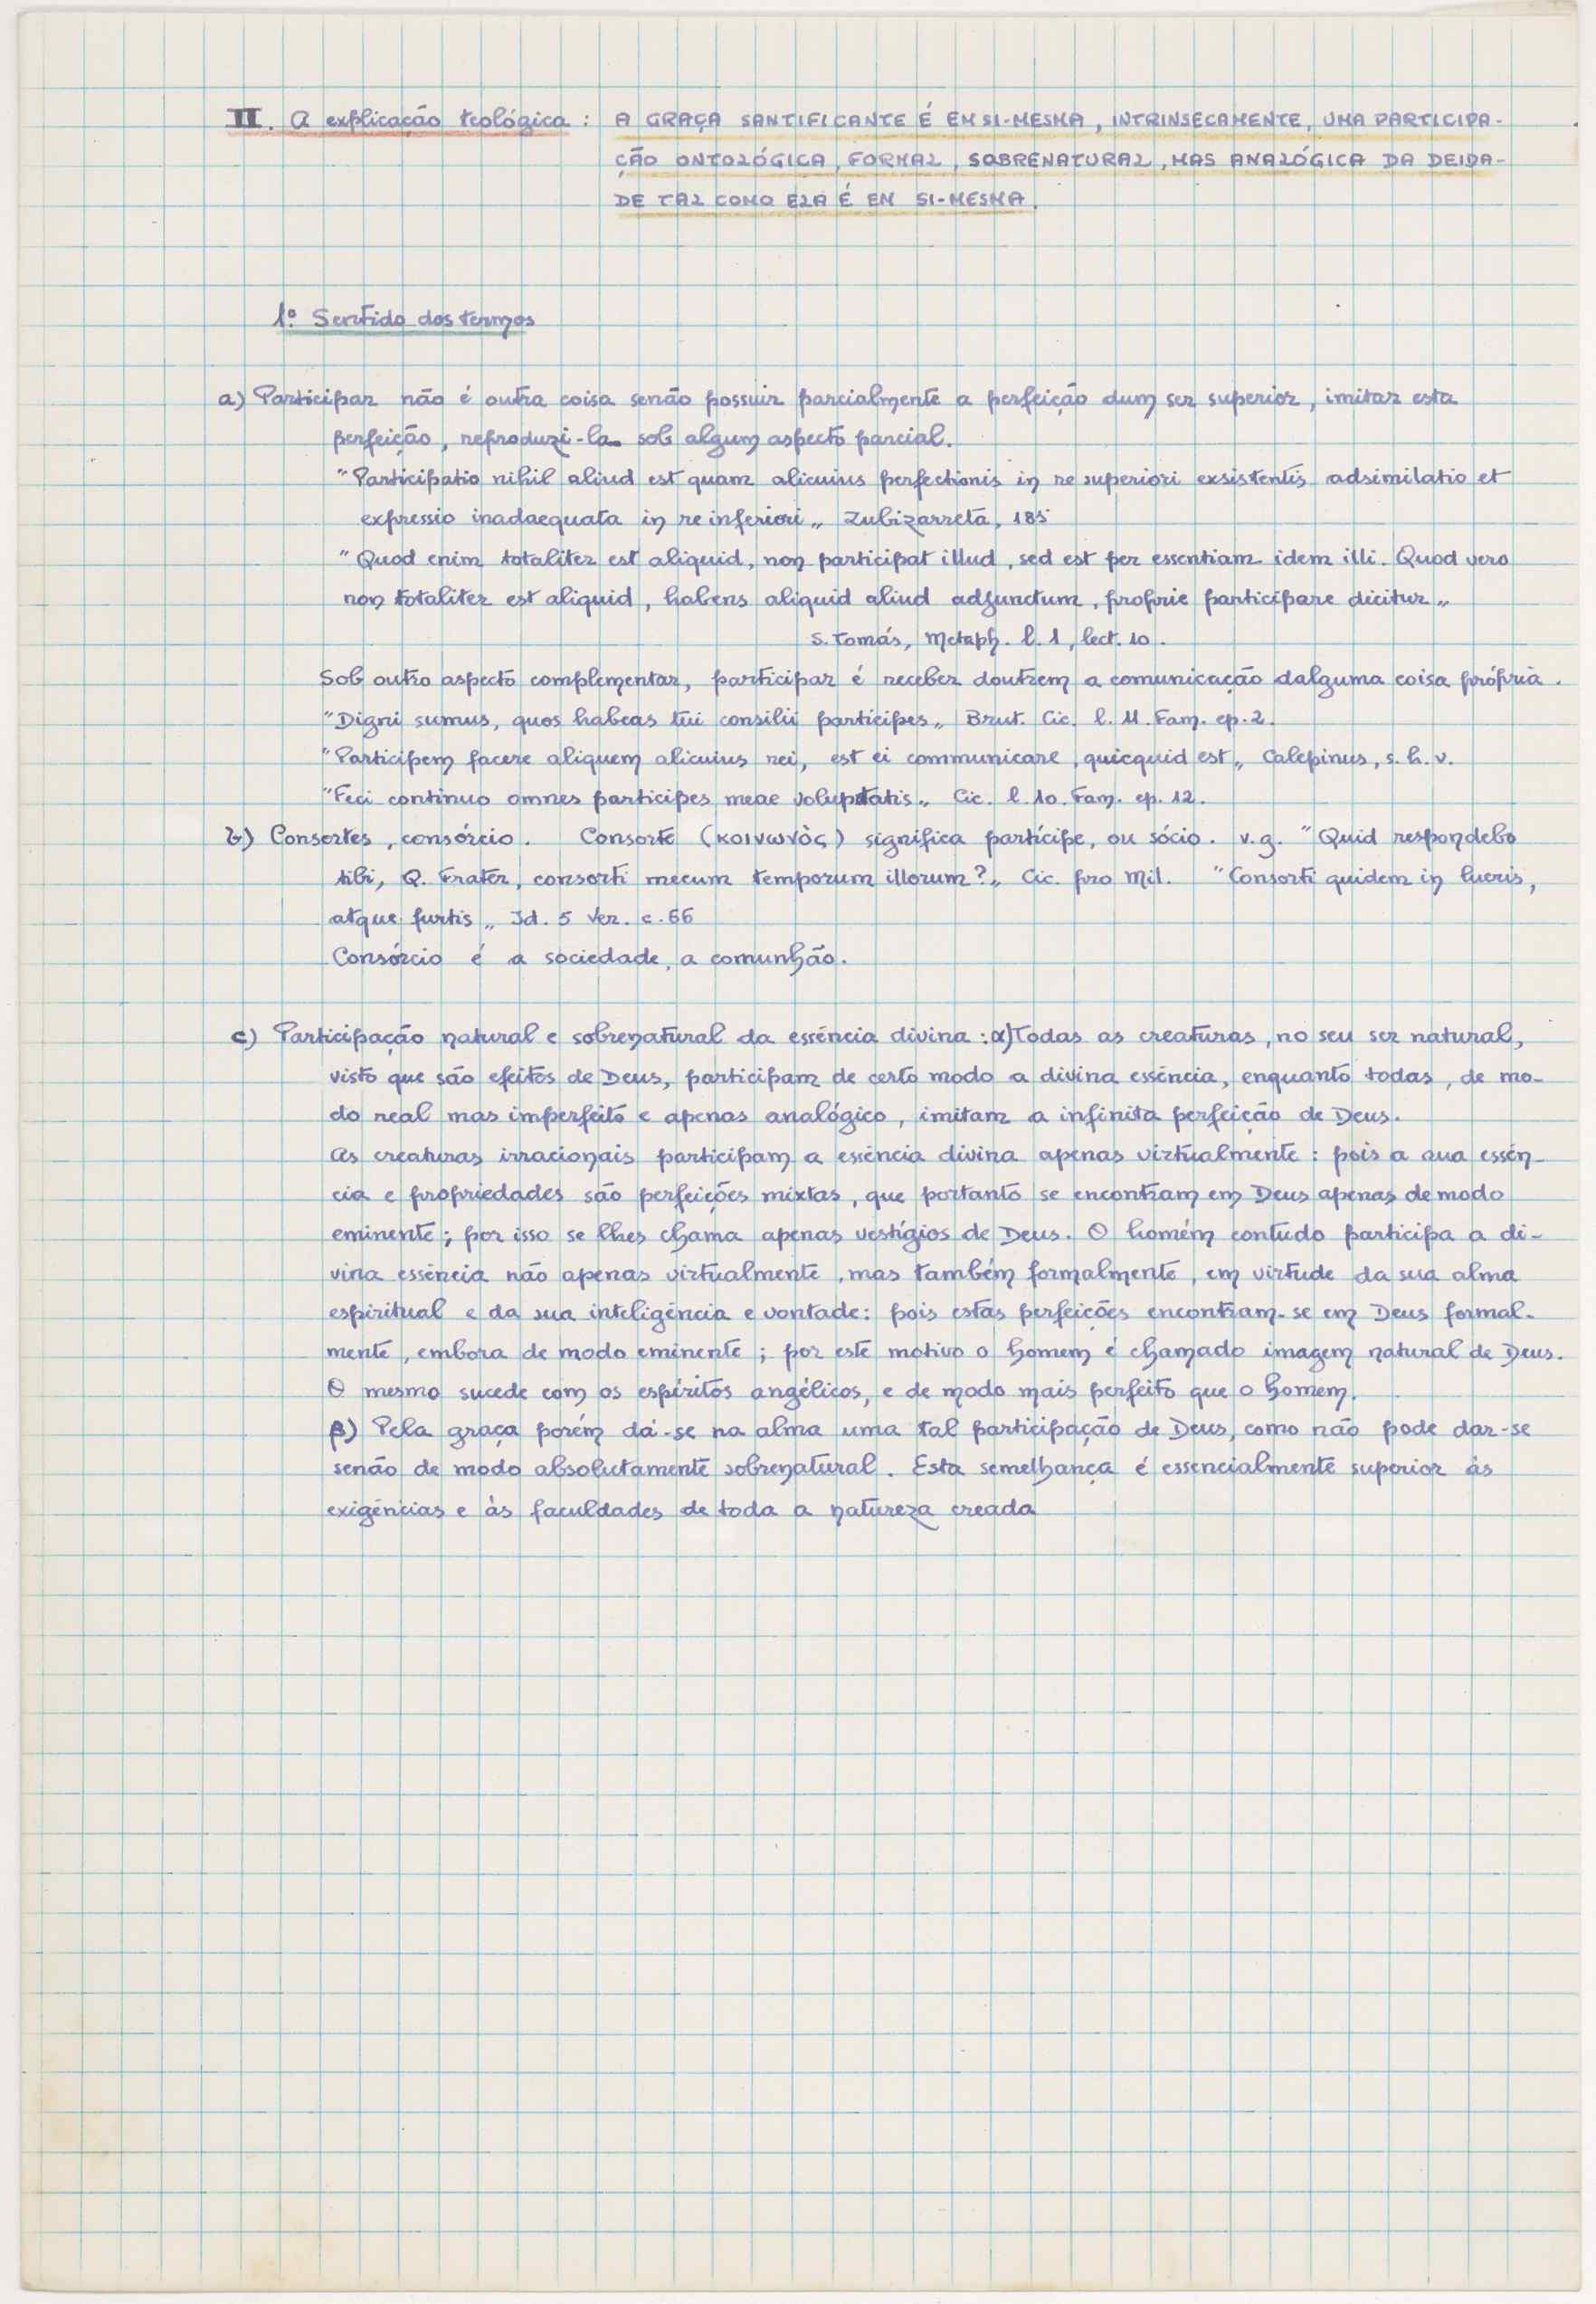 II. A explicação teológica: A GRAÇA SANTIFICANTE É EM SI-MESMA, INTRINSECAMENTE, UMA PARTICIPA-
ÇÃO ONTOLÓGICA, FORMAL, SOBRENATURAL, MAS ANALÓGICA DA DEIDA-
DE TAL COMO ELA É EM SI-MESMA.
1º. Sentido dos termos
a) Participar não é outra coisa senão possuir parcialmente a perfeição dum ser superior, imitar esta
perfeição, reproduzi-la sob algum aspecto parcial.
"Participatio nihil aliud est quam alicuius perfectionis in re superiori exsistentis adsimilatio et
expressio inadaequata in re inferiori„ Zubizarreta, 185
"Quod enim totaliter est aliquid, non participat illud, sed est per essentiam idem illi. Quod vero
non totaliter est aliquid, habens aliquid aliud adjunctum, proprie participare dicitur„
S. Tomás, Metaph. l. 1, lect. 10.
Sob outro aspecto complementar, participar é receber doutrem a comunicação dalguma coisa própria.
"Digni sumus, quos habeas tui consilii partícipes„ Brut. Cic. l. 11. Fam. ep. 2.
"Participem facere aliquem alicuius rei, est ei communicare, quicquid est„ Calepinus, s. h. v.
"Feci continuo omnes participes meae voluptatis„ Cic. l. 10. Fam. ep. 12.
b) Consortes, consórcio. Consorte (κοινωνὸς) significa partícipe, ou sócio. v.g. "Quid respondebo
tibi, Q. Frater, consorti mecum temporum illorum?„ Cic. pro Mil. "Consorti quidem in lucris,
atque furtis„ Id. 5 Ver. c. 66
Consórcio é a sociedade, a comunhão.
c) Participação natural e sobrenatural da essência divina: α) Todas as creaturas, no seu ser natural,
visto que são efeitos de Deus, participam de certo modo a divina essência, enquanto todas, de mo-
do real mas imperfeito e apenas analógico, imitam a infinita perfeição de Deus.
As creaturas irracionais participam a essência divina apenas virtualmente: pois a sua essên-
cia e propriedades são perfeições mixtas, que portanto se encontram em Deus apenas de modo
eminente; por isso se lhes chama apenas vestígios de Deus. O homém contudo participa a di-
vina essência não apenas virtualmente, mas também formalmente, em virtude da sua alma
espiritual e da sua inteligência e vontade: pois estas perfeições encontram-se em Deus formal-
mente, embora de modo eminente; por este motivo o homem é chamado imagem natural de Deus.
O mesmo sucede com os espíritos angélicos, e de modo mais perfeito que o homem.
β) Pela graça porém dá-se na alma uma tal participação de Deus, como não pode dar-se
senão de modo absolutamente sobrenatural. Esta semelhança é essencialmente superior às
exigências e às faculdades de toda a natureza creada